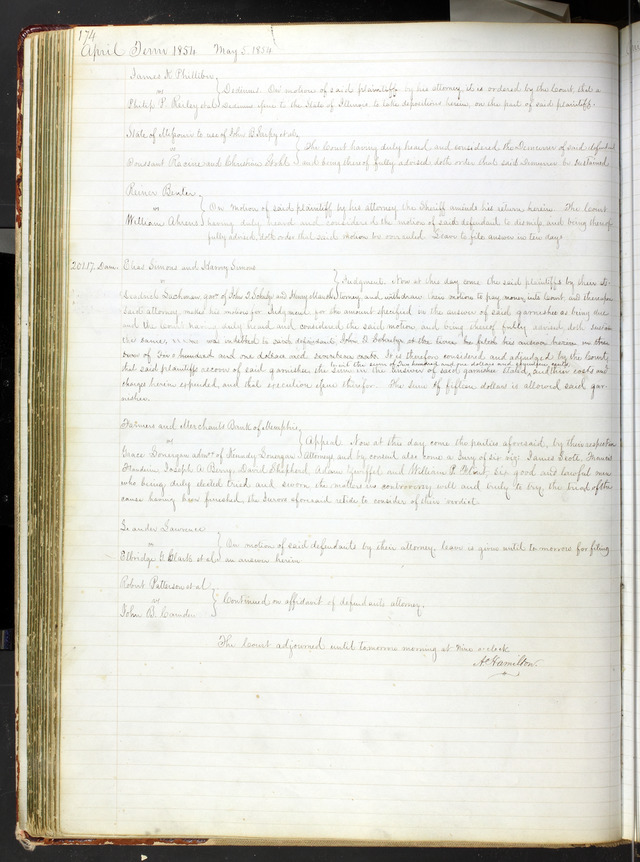 174
April Term 1854 May 5. 1854
James K. Phillibin
vs
Dedimus. On motion of said plaintiff by his attorney, it is ordered by the Court that a
Philip P. et al Dedimus issue to the State of Illinois to take depositions herein, on the part of said plaintiff.
State of Missouri to use of John B. Sarpy et al
vs
The Court having duly heard and considered the Demurrer of said defendant
Toussant and Christian and being thereof fully advised doth order that said Demurrer be sustained
Reiner Benter
vs
On Motion of said plaintiff by his attorney the Sheriff amends his return herein. The Court
William Ahrens having duly heard and considered the motion of said defendant to dismiss, and being thereof
fully advised, doth order that said motion be overruled. Leave to file answer in ten days
20117. Dam. Chas Simons and Harvey Simons
vs
Judgment. Now at this day come the said plaintiffs by their at-
garn of John and Henry torney and withdraw their motion to pay money into Court, and thereupon
said attorney makes his motion for Judgment for the amount specified in the answer of said garnishee as being due
and the Court having duly heard and considered the said motion and being thereof fully advised, doth sustain
the same, was indebted to said defendant, John at the time he filed his answer herein in the
sum of Two hundred and one dollars and cents. It is therefore considered and adjudged by the Court,
to wit the sum of Two hundred and one dollars and cents
that said plaintiffs recover of said garnishee, the sum in the answer of said garnishee stated, and their costs and
charges herein expended, and that execution issue therefor. The sum of fifteen dollars is allowed said gar-
nishee.
Farmers and Merchants Bank of Memphis,
vs
Appeal. Now at this day come the parties aforesaid, by their respective
Grace Donegan admx of Donegan Attorneys and by consent also come a Jury of six viz. James Scott, Francis
Joseph A. Berry, David Shepherd, Adam and William P. six good and lawful men
who being duly elected tried and sworn the matters in controversy well and truly to try, the trial of the
cause having been finished, the Jurors aforesaid retire, to consider of their verdict.
Leander Lawrence
vs
On motion of said defendants by their attorney leave is given until to-morrow for filing
Elbridge G. Clark et al an answer herein
Robert Patterson et al
vs
Continued on affidavit of defendants attorney.
John B. Camden
The Court adjourned until tomorrow morning at nine o'clock
A. Hamilton.